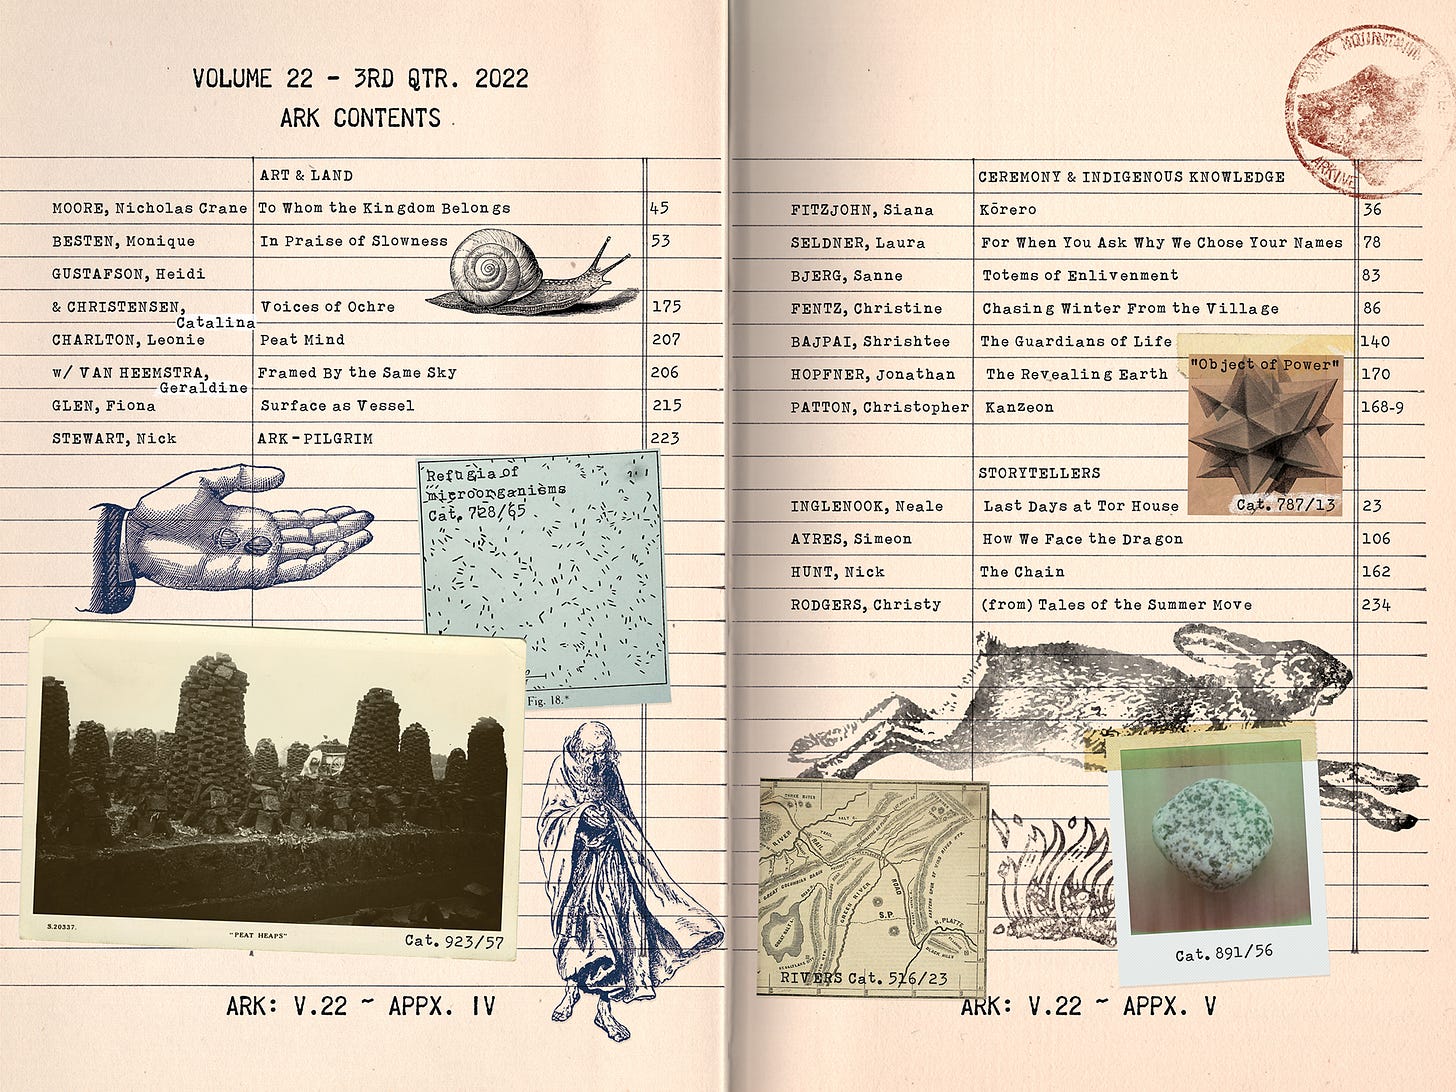 VOLUME 22 - 3RD QTR. 2022
ARK CONTENTS
ART & LAND
MOORE, Nicholas Crane To Whom the Kingdom Belongs 45
BESTEN, Monique In Praise of Slowness 53
GUSTAFSON, Heidi
& CHRISTENSEN, Voices of Ochre 175
Catalina
CHARLTON, Leonie Peat Mind 207
w/ VAN HEEMSTRA, Framed By the Same Sky 206
Geraldine
GLEN, Fiona Surface as Vessel 215
STEWART, Nick ARK-PILGRIM 223
Refugia of
microorganisms
Cat. 728/65
Fig. 18.*
S.20337.
"PEAT HEAPS"
Cat. 923/57
ARK: V.22 ~ APPX. IV
DARK MOUNTAIN
ARKIVE
CEREMONY & INDIGENOUS KNOWLEDGE
FITZJOHN, Siana Kōrero 36
SELDNER, Laura For When You Ask Why We Chose Your Names 78
BJERG, Sanne Totems of Enlivenment 83
FENTZ, Christine Chasing Winter From the Village 86
BAJPAI, Shrishtee The Guardians of Life 140
HOPFNER, Jonathan The Revealing Earth 170
PATTON, Christopher Kanzeon 168-9
"Object of Power"
Cat. 787/13
STORYTELLERS
INGLENOOK, Neale Last Days at Tor House 23
AYRES, Simeon How We Face the Dragon 106
HUNT, Nick The Chain 162
RODGERS, Christy (from) Tales of the Summer Move 234
THREE RIVER
RIVER
SALT C.
TRAIL
GREAT COLUMBIAN BASIN
GREEN RIVER
ROAD
S.P.
N. PLATTE
BLACK HILLS
RIVERS Cat. 516/23
Cat. 891/56
ARK: V.22 ~ APPX. V